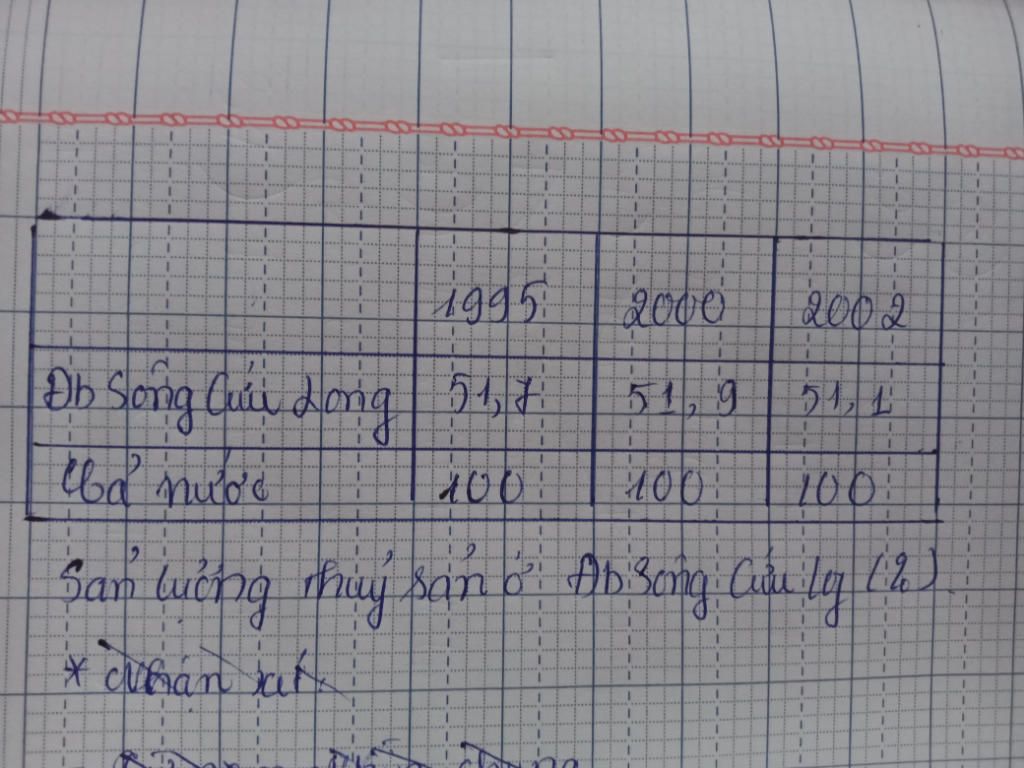 1995 2000 2002
Đb Sông Cửu Long 51,7 51,9 51,1
Cả nước 100 100 100
Sản lượng thuỷ sản ở Đb Sông Cửu lg (%)
* Nhận xét.